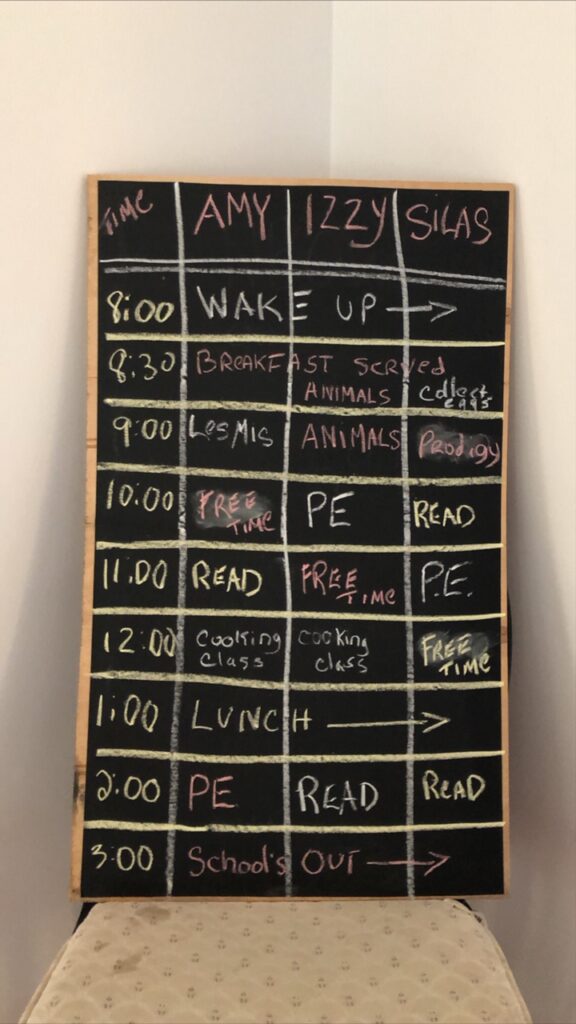 TIME AMY IZZY SILAS
8:00 WAKE UP →
8:30 BREAKFAST SERVED
ANIMALS collect
eggs
9:00 LesMis ANIMALS Prodigy
10:00 FREE TIME PE READ
11:00 READ FREE TIME P.E.
12:00 cooking class cooking class FREE TIME
1:00 LUNCH →
2:00 PE READ READ
3:00 School's OUT →